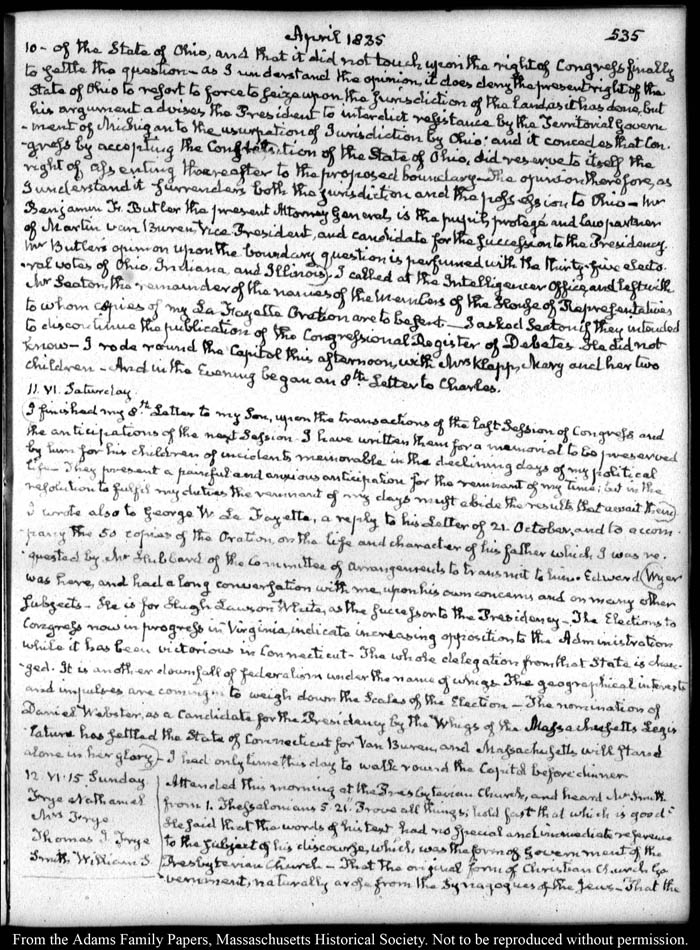 April 1835
535
10 - of the State of Ohio, and that it did not touch upon the right of Congress finally
to settle the question - as I understand the opinion, it does deny the present right of the
State of Ohio to resort to force to seize upon the Jurisdiction of the land as it has done, but
his argument advises the President to interdict resistance by the Territorial Govern
-ment of Michigan to the usurpation of Jurisdiction by Ohio; and it concedes that Con-
-gress by accepting the Constitution of the State of Ohio, did reserve to itself the
right of assenting thereafter to the proposed boundary - The opinion therefore, as
I understand it surrenders both the jurisdiction and the possession to Ohio - Mr
Benjamin F. Butler the present Attorney General, is the pupil, protegé and law partner
of Martin Van Buren, Vice President, and candidate for the succession to the Presidency.
Mr Butler's opinion upon the boundary question is perfumed with the thirty-five electo-
-ral votes of Ohio, Indiana, and Illinois) - I called at the Intelligencer Office, and left with
Mr Seaton, the remainder of the names of the Members of the House of Representatives
to whom copies of my La Fayette Oration are to be sent - I asked Seaton if they intended
to discontinue the publication of the Congressional Register of Debates. He did not
know - I rode round the Capitol this afternoon, with Mrs Klapp, Mary and her two
children - And in the Evening began an 8th Letter to Charles.
11. VI. Saturday.
(I finished my 8th Letter to my Son, upon the transactions of the last Session of Congress and
the anticipations of the next Session. I have written them for a memorial to be preserved
by him for his children of incidents memorable in the declining days of my political
life - They present a painful and anxious anticipation for the remnant of my time; but in the
resolution to fulfil my duties the remnant of my days must abide the results that await them)
I wrote also to George W. La Fayette, a reply to his Letter of 21. October, and to accom-
pany the 50 copies of the Oration, on the life and character of his father which I was re-
quested by Mr Hubbard of the Committee of arrangements to transmit to him. Edward (Wyer
was here, and had a long conversation with me, upon his own concerns and on many other
subjects - He is for Hugh Lawson White, as the successor to the Presidency - The Elections to
Congress now in progress in Virginia, indicate increasing opposition to the Administration
while it has been victorious in Connecticut - The whole delegation from that State is chan-
-ged. It is another downfall of federalism under the name of whigs. The geographical interests
and impulses are coming in to weigh down the Scales of the Election - The nomination of
Daniel Webster, as a Candidate for the Presidency by the Whigs of the Massachusetts Legis-
-lature has settled the State of Connecticut for Van Buren, and Massachusetts will stand
alone in her glory) - I had only time this day to walk round the Capitol before dinner
12. VI. 15 Sunday.
Frye Nathaniel
Mrs Frye
Thomas J. Frye
Smith, William S.
Attended this morning at the Presbyterian Church, and heard Mr Smith
from 1. Thessalonians 5. 21. Prove all things; hold fast that which is good -
He said that the words of his text had no special and immediate reference
to the subject of his discourse, which was the form of Government of the
Presbyterian Church - That the original form of Christian Church Go-
vernment, naturally arose from the Synagogues of the Jews - That the
From the Adams Family Papers, Massachusetts Historical Society. Not to be reproduced without permission.